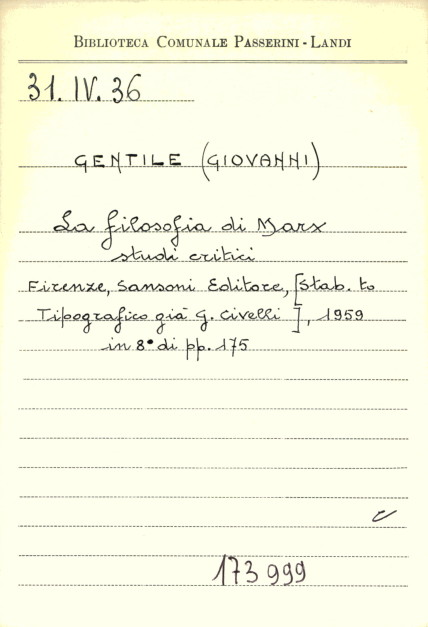 BIBLIOTECA COMUNALE PASSERINI - LANDI
31. IV. 36
GENTILE (GIOVANNI)
La filosofia di Marx
studi critici
Firenze, Sansoni Editore, [Stab. to
Tipografico già G. Civelli ], 1959
in 8° di pp. 175
173 999